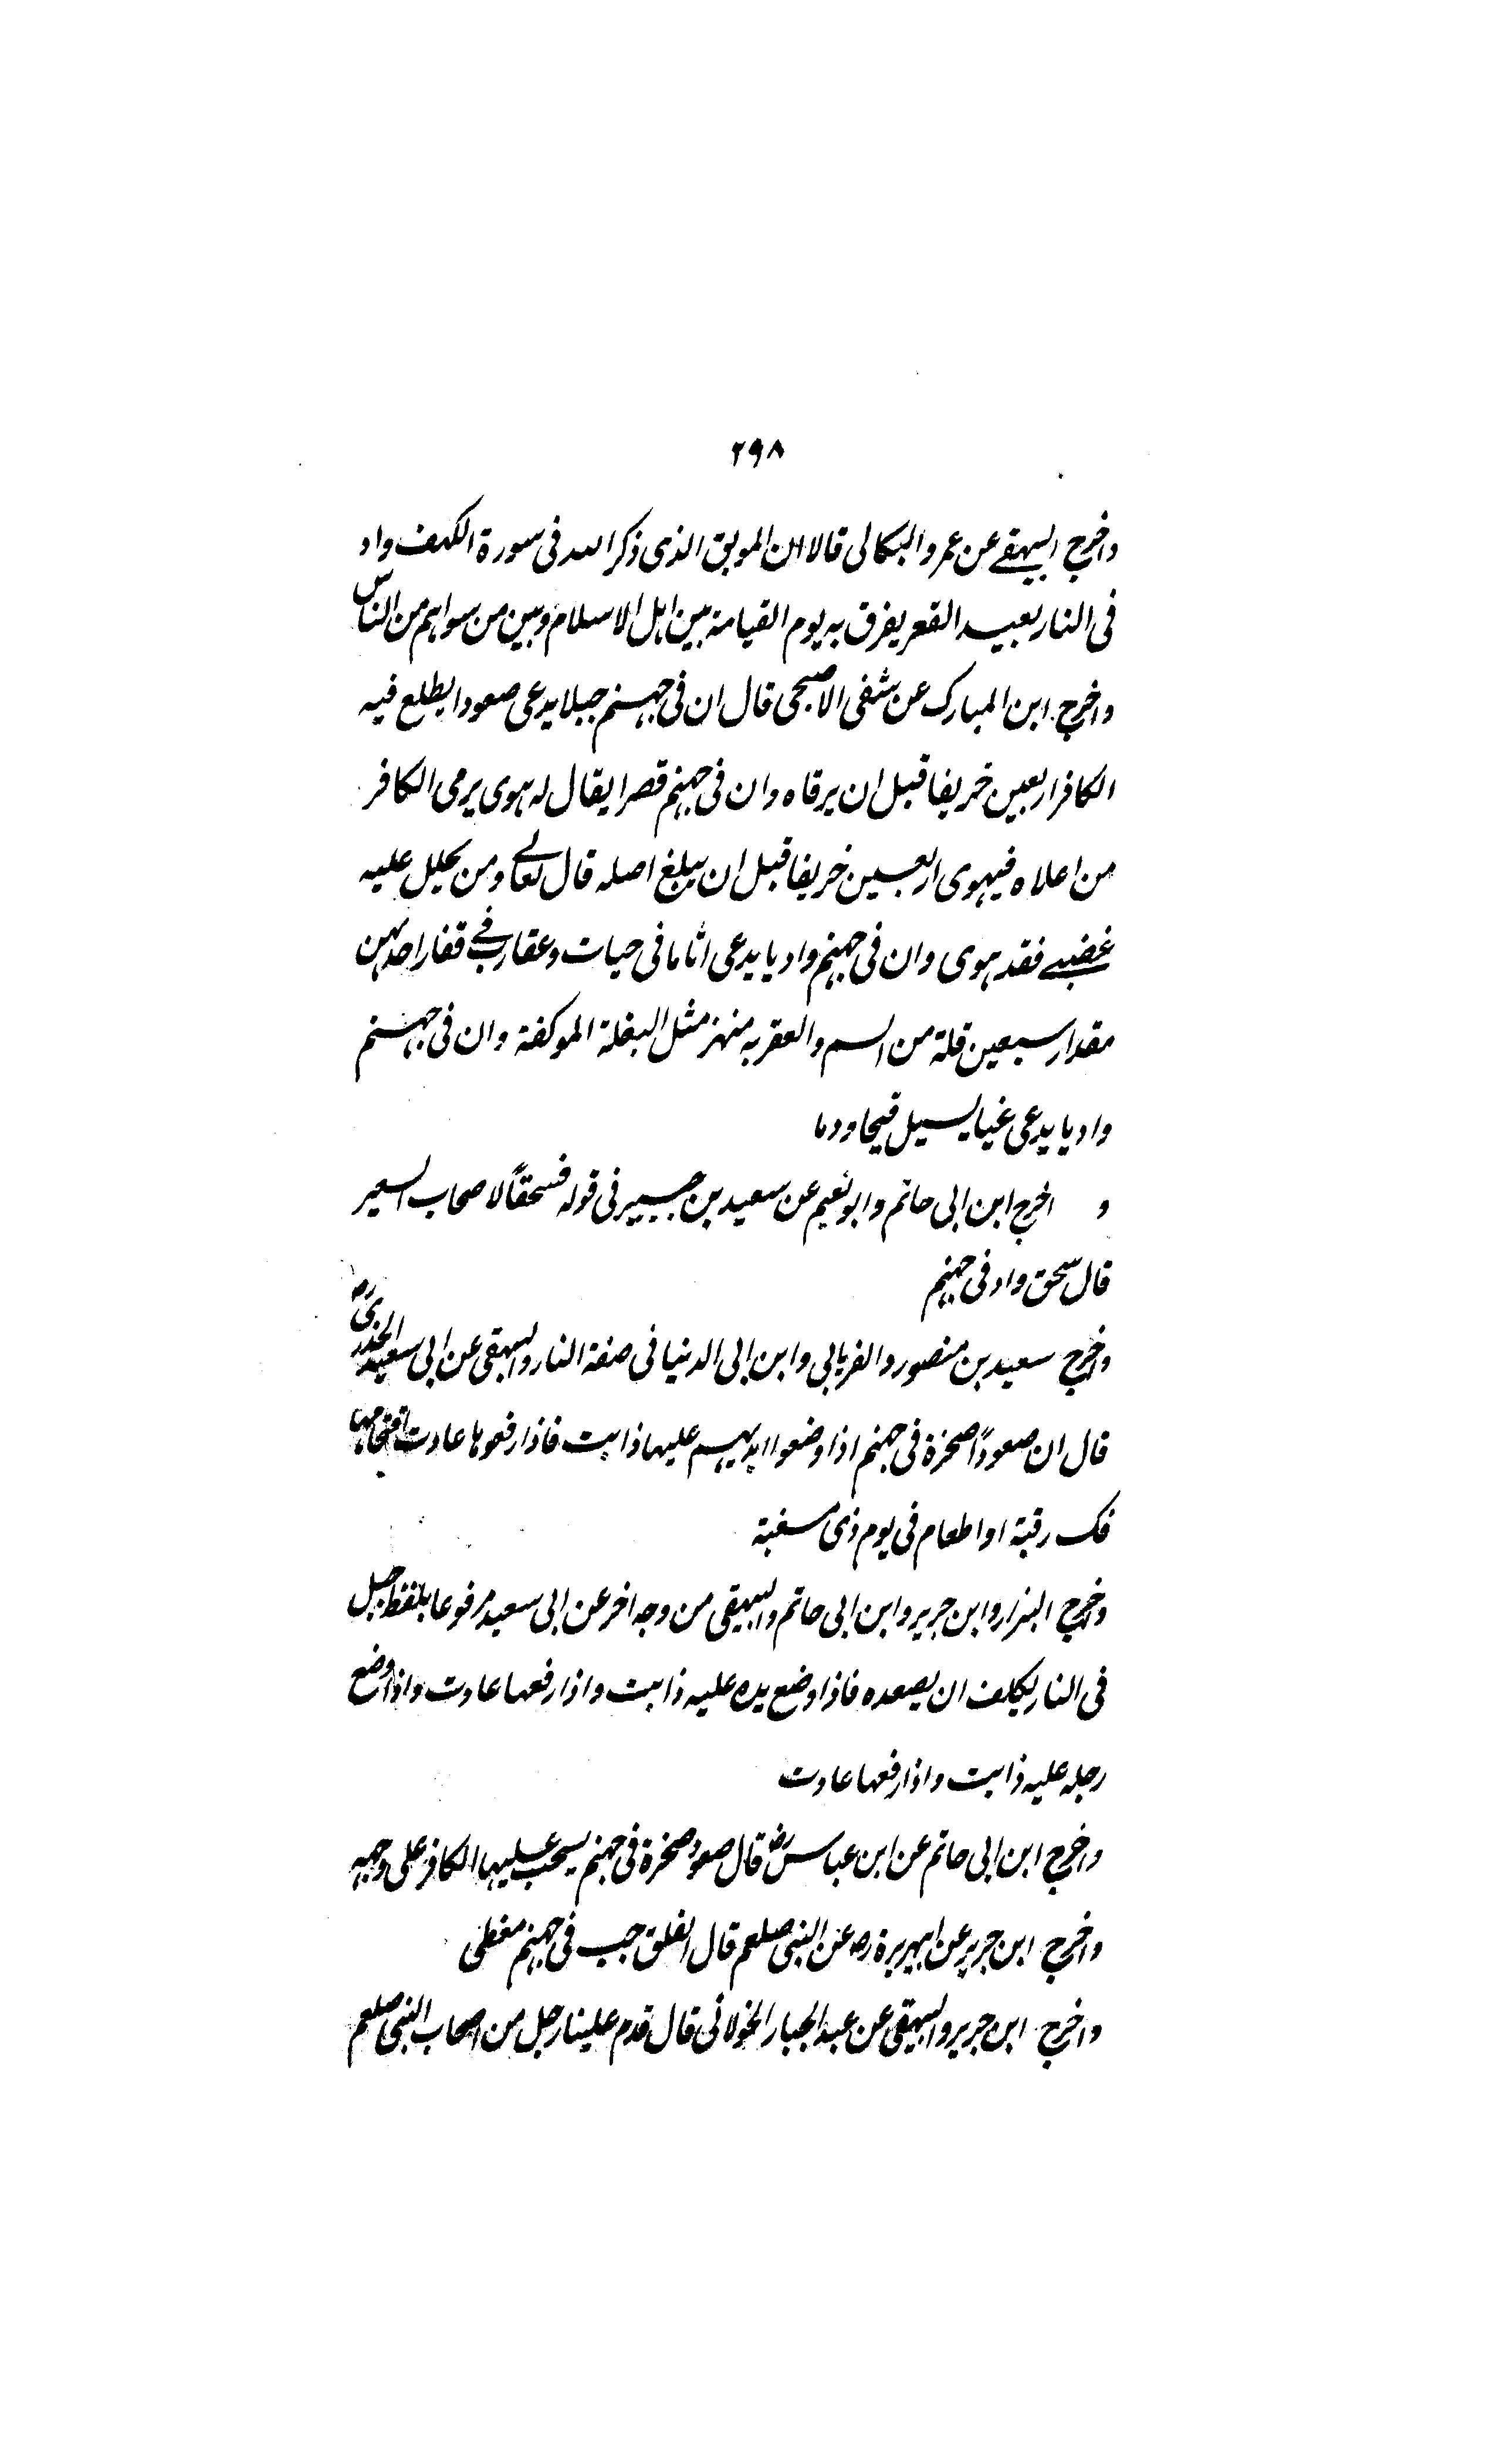 ۲۹۸
واخرج البیهقے عن عمرو البکالی قالا ان الموبق الذی ذکر الله فی سورة الکهف واد
فی النار بعید القعر یفرق به یوم القیامة بین اهل الاسلام وبین من سواهم من الناس
واخرج ابن المبارک عن شفی الاصبحی قال ان فی جهنم جبلا یدعی صعودا یطلع فیه
الکافر اربعین خریفا قبل ان یرقاه وان فی جهنم قصرا یقال له هوی یرمی الکافر
من اعلاه فیهوی اربعین خریفا قبل ان یبلغ اصله قال تعالےٰ ومن یحلل علیه
غضبے فقد هوی وان فی جهنم وادیا یدعی اثاما فی حیات وعقارب فے قفار احدیهن
مقدار سبعین قلة من السم والعقربه منهن مثل البغلة الموکفة وان فی جهنم
وادیا یدعی غیا یسیل قیحا ودما
و اخرج ابن ابی حاتم وابو نعیم عن سعید بن جبیر فی قوله فسحقاً لاصحاب السعیر
قال سحق واد فی جهنم
واخرج سعید بن منصور والفریابی وابن ابی الدنیا فی صفة النار والبیهقی عن ابی سعید الخدری رض
قال ان صعوداً صخرة فی جهنم اذا وضعوا ایدیهم علیها ذابت فاذا رفعوها عادت اقتحامها
فک رقبة او اطعام فی یوم ذی مسغبة
واخرج البزار وابن جریر وابن ابی حاتم والبیهقی من وجه اخر عن ابی سعید مرفوعا بلفظ جبل
فی النار یکلف ان یصعده فاذا وضع یده علیه ذابت واذا رفعها عادت واذا وضع
رجله علیه ذابت واذا رفعها عادت
واخرج ابن ابی حاتم عن ابن عباس رض قال صعود صخرة فی جهنم یسحب علیها الکافر علی وجهه
واخرج ابن جریر عن ابیهریرة رض عن النبی صلعم قال الفلق جب فی جهنم مغطی
واخرج ابن جریر والبیهقی عن عبد الجبار الخولانی قال قدم علینا رجل من اصحاب النبی صلعم